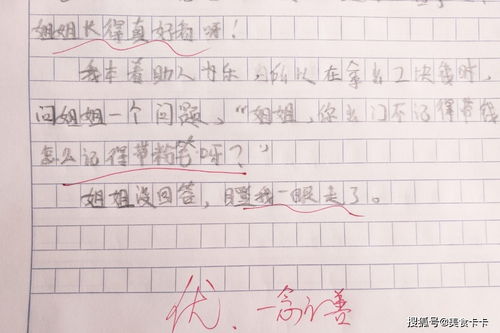 姐姐长得真好看呀！
我本着助人为乐，所以在拿出工块钱时，
问姐姐一个问题，“姐姐，你出门不记得带钱
怎么记得带粉笔呀？”
姐姐没回答，瞪我一眼走了。
优．
搜狐号@美食卡卡